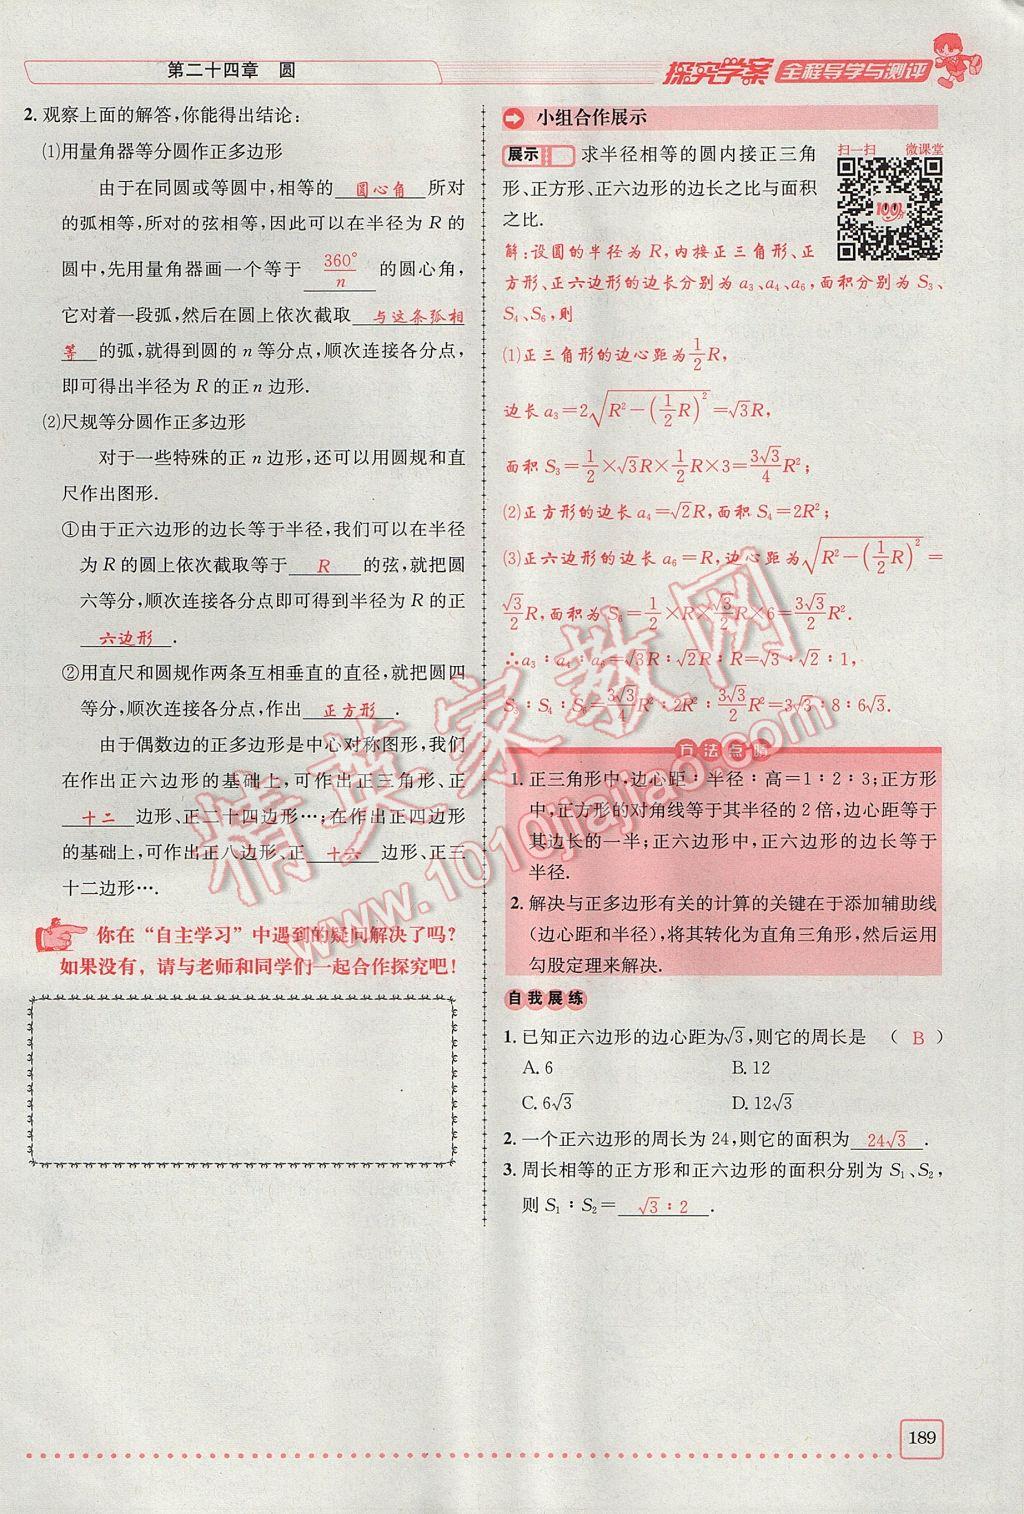 第二十四章 圆
探究学案 全程导学与测评
2. 观察上面的解答,你能得出结论:
⑴用量角器等分圆作正多边形
由于在同圆或等圆中,相等的 圆心角 所对
的弧相等,所对的弦相等,因此可以在半径为 R 的
圆中,先用量角器画一个等于 360°/n 的圆心角,
它对着一段弧,然后在圆上依次截取 与这条弧相
等 的弧,就得到圆的 n 等分点,顺次连接各分点,
即可得出半径为 R 的正 n 边形.
⑵尺规等分圆作正多边形
对于一些特殊的正 n 边形,还可以用圆规和直
尺作出图形.
①由于正六边形的边长等于半径,我们可以在半径
为 R 的圆上依次截取等于 R 的弦,就把圆
六等分,顺次连接各分点即可得到半径为 R 的正
六边形 .
②用直尺和圆规作两条互相垂直的直径,就把圆四
等分,顺次连接各分点,作出 正方形 .
由于偶数边的正多边形是中心对称图形,我们
在作出正六边形的基础上,可作出正三角形、正
十二 边形、正二十四边形…;在作出正四边形
的基础上,可作出正八边形、正 十六 边形、正三
十二边形….
你在“自主学习”中遇到的疑问解决了吗?
如果没有,请与老师和同学们一起合作探究吧!
小组合作展示
扫一扫 微课堂
展示 求半径相等的圆内接正三角
形、正方形、正六边形的边长之比与面积
之比.
解:设圆的半径为 R,内接正三角形、正
方形、正六边形的边长分别为 a₃、a₄、a₆,面积分别为 S₃、
S₄、S₆,则
⑴正三角形的边心距为1/2R,
边长 a₃=2√(R²-(1/2R)²)=√3R,
面积 S₃=1/2×√3R×1/2R×3=3√3/4R²;
⑵正方形的边长 a₄=√2R,面积 S₄=2R²;
⑶正六边形的边长 a₆=R,边心距为√(R²-(1/2R)²)=
√3/2R,面积为 S₆=1/2×R×√3/2R×6=3√3/2R².
∴a₃∶a₄∶a₆=√3R∶√2R∶R=√3∶√2∶1,
S₃∶S₄∶S₆=3√3/4R²∶2R²∶3√3/2R²=3√3∶8∶6√3.
方法点睛
1. 正三角形中,边心距∶半径∶高=1∶2∶3;正方形
中,正方形的对角线等于其半径的 2 倍,边心距等于
其边长的一半;正六边形中,正六边形的边长等于
半径.
2. 解决与正多边形有关的计算的关键在于添加辅助线
(边心距和半径),将其转化为直角三角形,然后运用
勾股定理来解决.
自我展练
1. 已知正六边形的边心距为√3,则它的周长是 ( B )
A. 6 B. 12
C. 6√3 D. 12√3
2. 一个正六边形的周长为 24,则它的面积为 24√3 .
3. 周长相等的正方形和正六边形的面积分别为 S₁、S₂,
则 S₁∶S₂= √3∶2 .
精英家教网
www.1010jiajiao.com
189